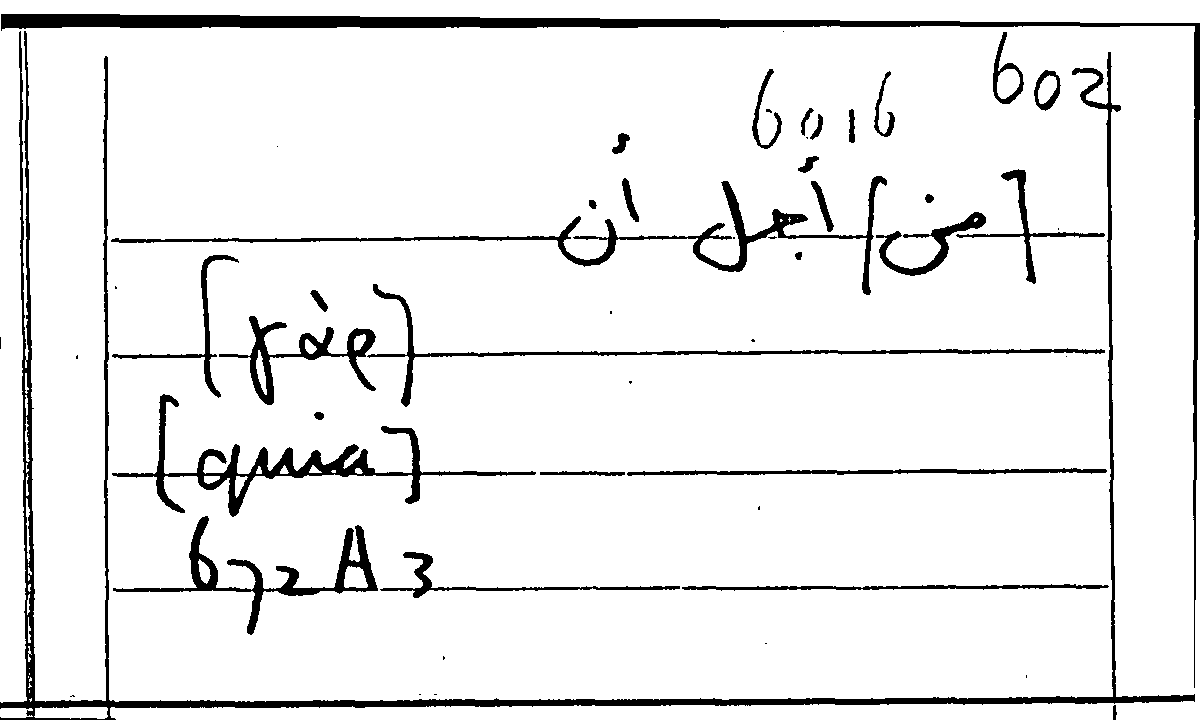 602
6016
[من] أجل أن
[γὰρ]
[quia]
672 A 3